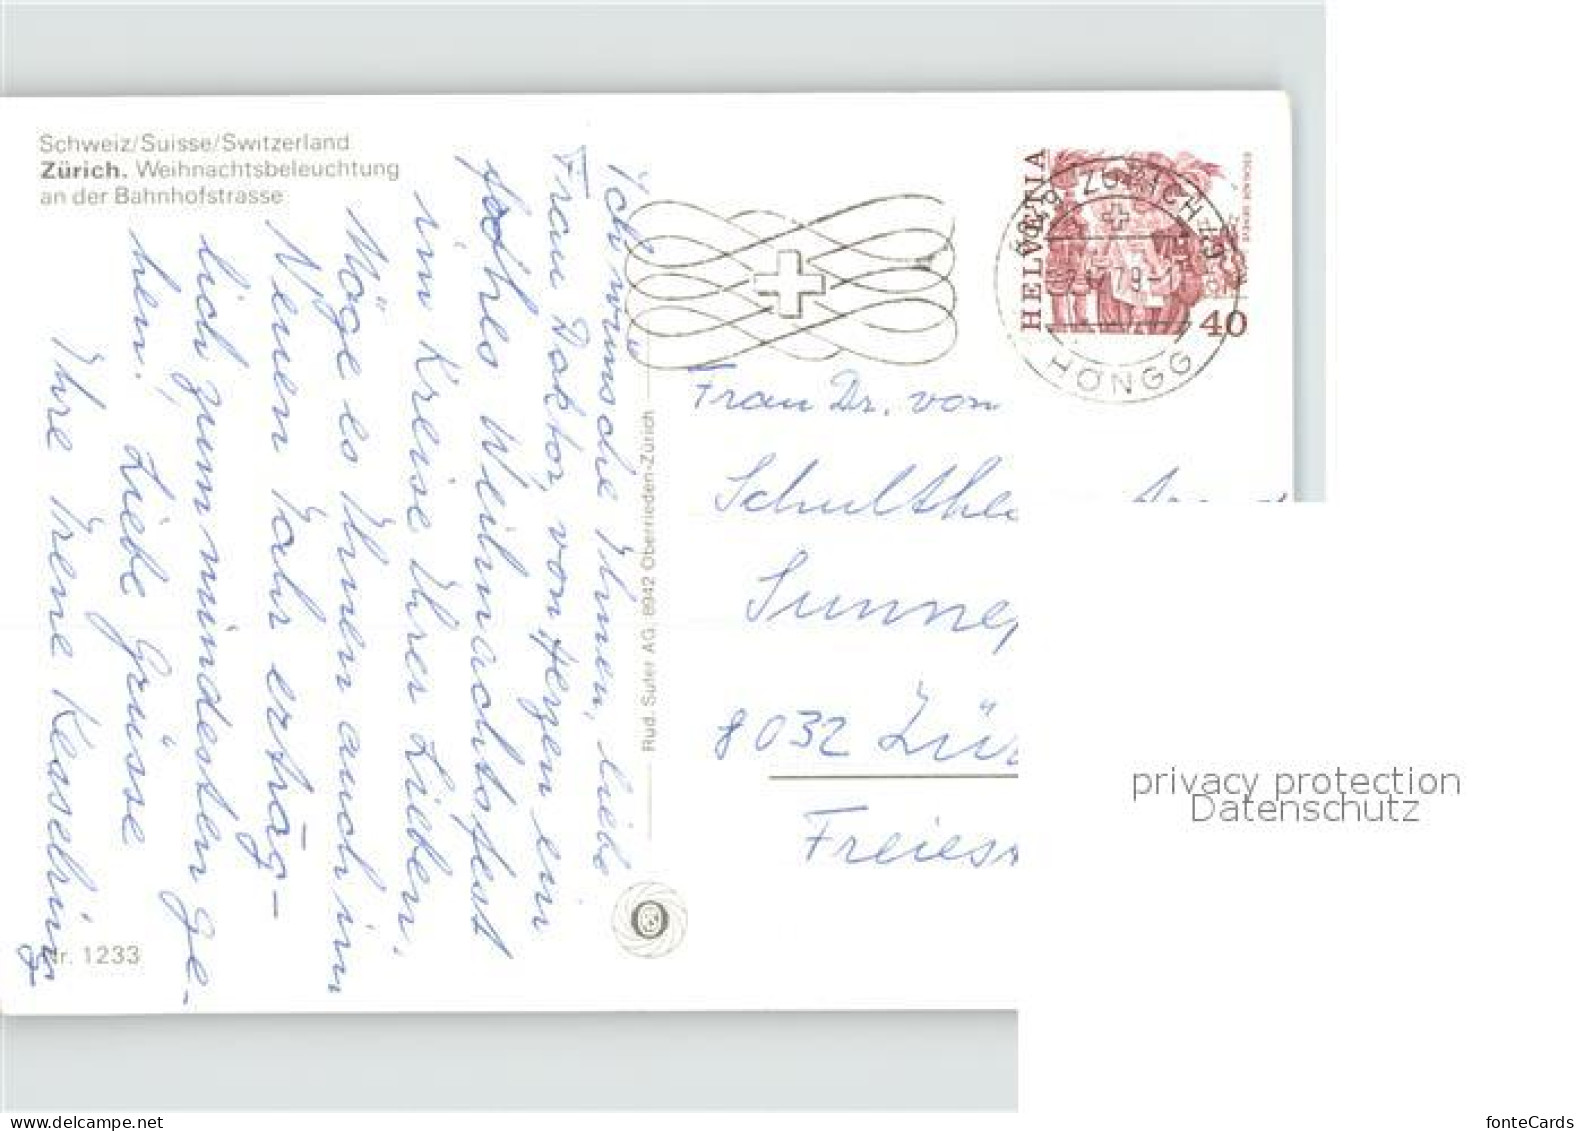 Schweiz/Suisse/Switzerland
Zürich. Weihnachtsbeleuchtung
an der Bahnhofstrasse
Ich wünsche Ihnen, liebe
Frau Doktor, von Herzen ein
frohes Weihnachtsfest
im Kreise Ihrer Lieben.
Möge es Ihnen auch im
Neuen Jahr erträg-
lich zum mindesten ge-
hen. Liebe Grüsse
Ihre Irene Kesselring
Nr. 1233
Rud. Suter AG, 8942 Oberrieden-Zürich
HELVETIA
40
ZÜRICH
79
HÖNGG
Frau Dr. von
Schulthe
Sunne
8032 Zür
Freies
privacy protection
Datenschutz
fonteCards